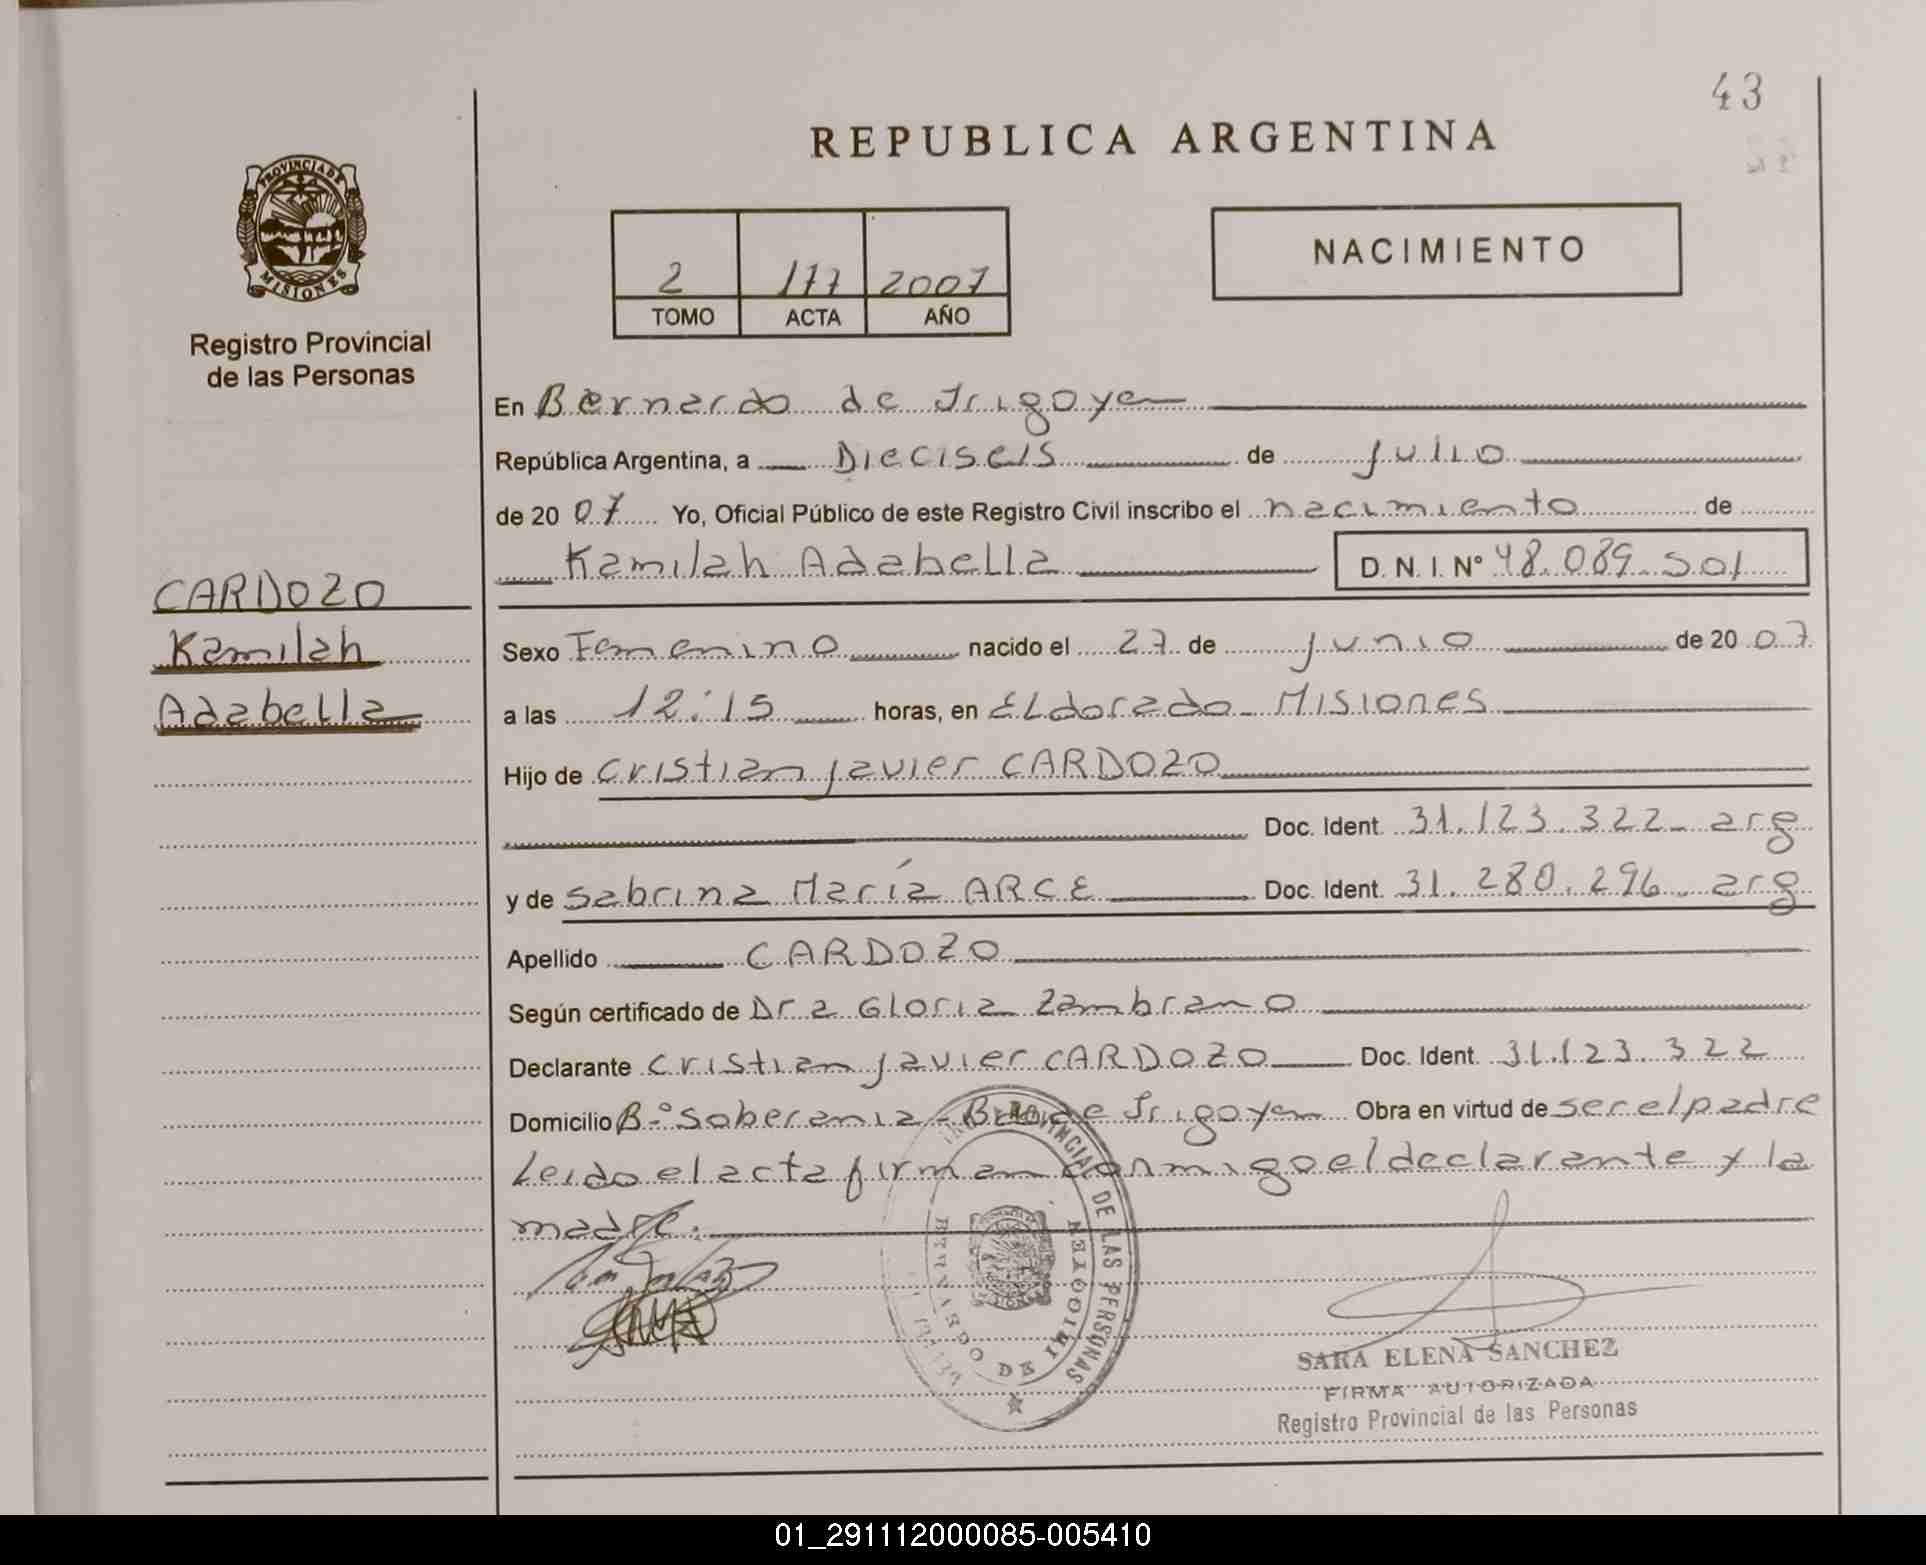 43
REPUBLICA ARGENTINA
PROVINCIA DE
MISIONES
Registro Provincial
de las Personas
2 177 2007
TOMO ACTA AÑO
NACIMIENTO
En Bernardo de Irigoyen
República Argentina, a Dieciseis de julio
de 20 07 Yo, Oficial Público de este Registro Civil inscribo el nacimiento de
Kamilah Adabella D. N. I. Nº 48.089.501
CARDOZO
Kamilah
Adabella
Sexo Femenino nacido el 27 de junio de 20 07
a las 12:15 horas, en ELdorado - Misiones
Hijo de Cristian javier CARDOZO
Doc. Ident. 31.123.322 - arg
y de Sabrina María ARCE Doc. Ident. 31.280.296 - arg
Apellido CARDOZO
Según certificado de Dra Gloria Zambrano
Declarante Cristian javier CARDOZO Doc. Ident. 31.123.322
Domicilio B.º Soberania - B. de Irigoyen Obra en virtud de ser el padre
Leido el acta firman conmigo el declarante y la
madre.
PROVINCIAL DE LAS PERSONAS
BERNARDO DE IRIGOYEN
SARA ELENA SANCHEZ
FIRMA AUTORIZADA
Registro Provincial de las Personas
01_291112000085-005410